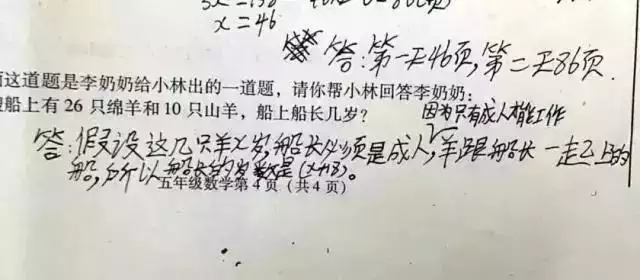 x=46
答:第一天46页,第二天86页.
这道题是李奶奶给小林出的一道题,请你帮小林回答李奶奶:
船上有 26 只绵羊和 10 只山羊,船上船长几岁?
因为只有成人才能工作
答:假设这几只羊X岁,船长必须是成人,羊跟船长一起上的
船,所以船长的岁数是(x+18)。
五年级数学第 4 页(共 4 页)